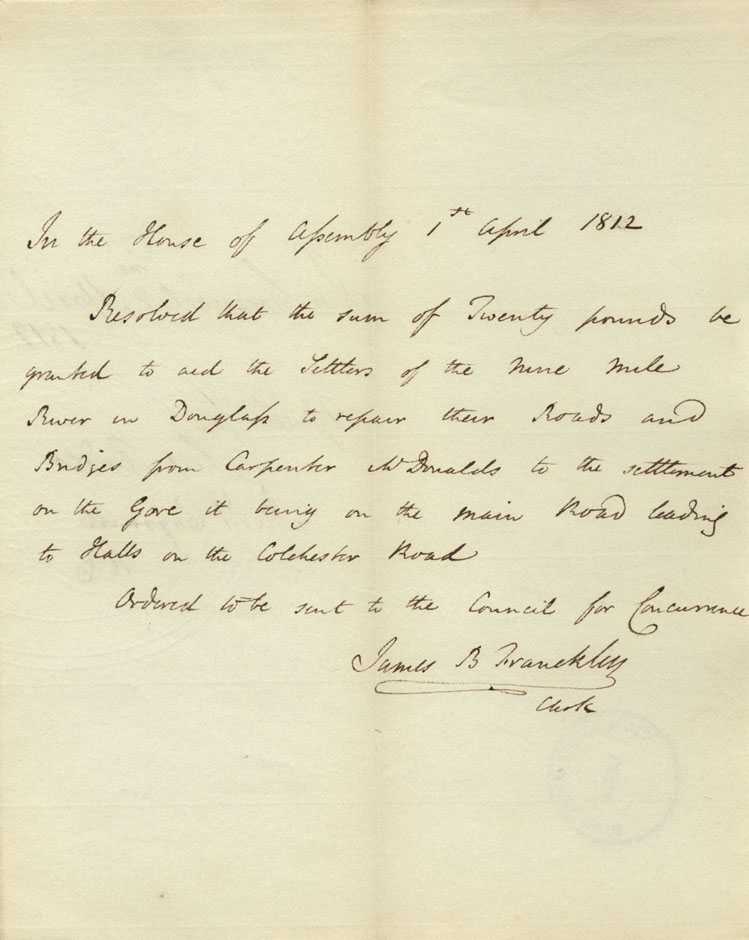 In the House of Assembly 1st April 1812
Resolved that the sum of Twenty pounds be
granted to aid the Settlers of the Nine Mile
River in Douglass to repair their Roads and
Bridges from Carpenter McDonalds to the settlement
on the Gore it being on the main Road leading
to Halls on the Colchester Road
Ordered to be sent to the Council for Concurrence
James B Franckley
Clerk